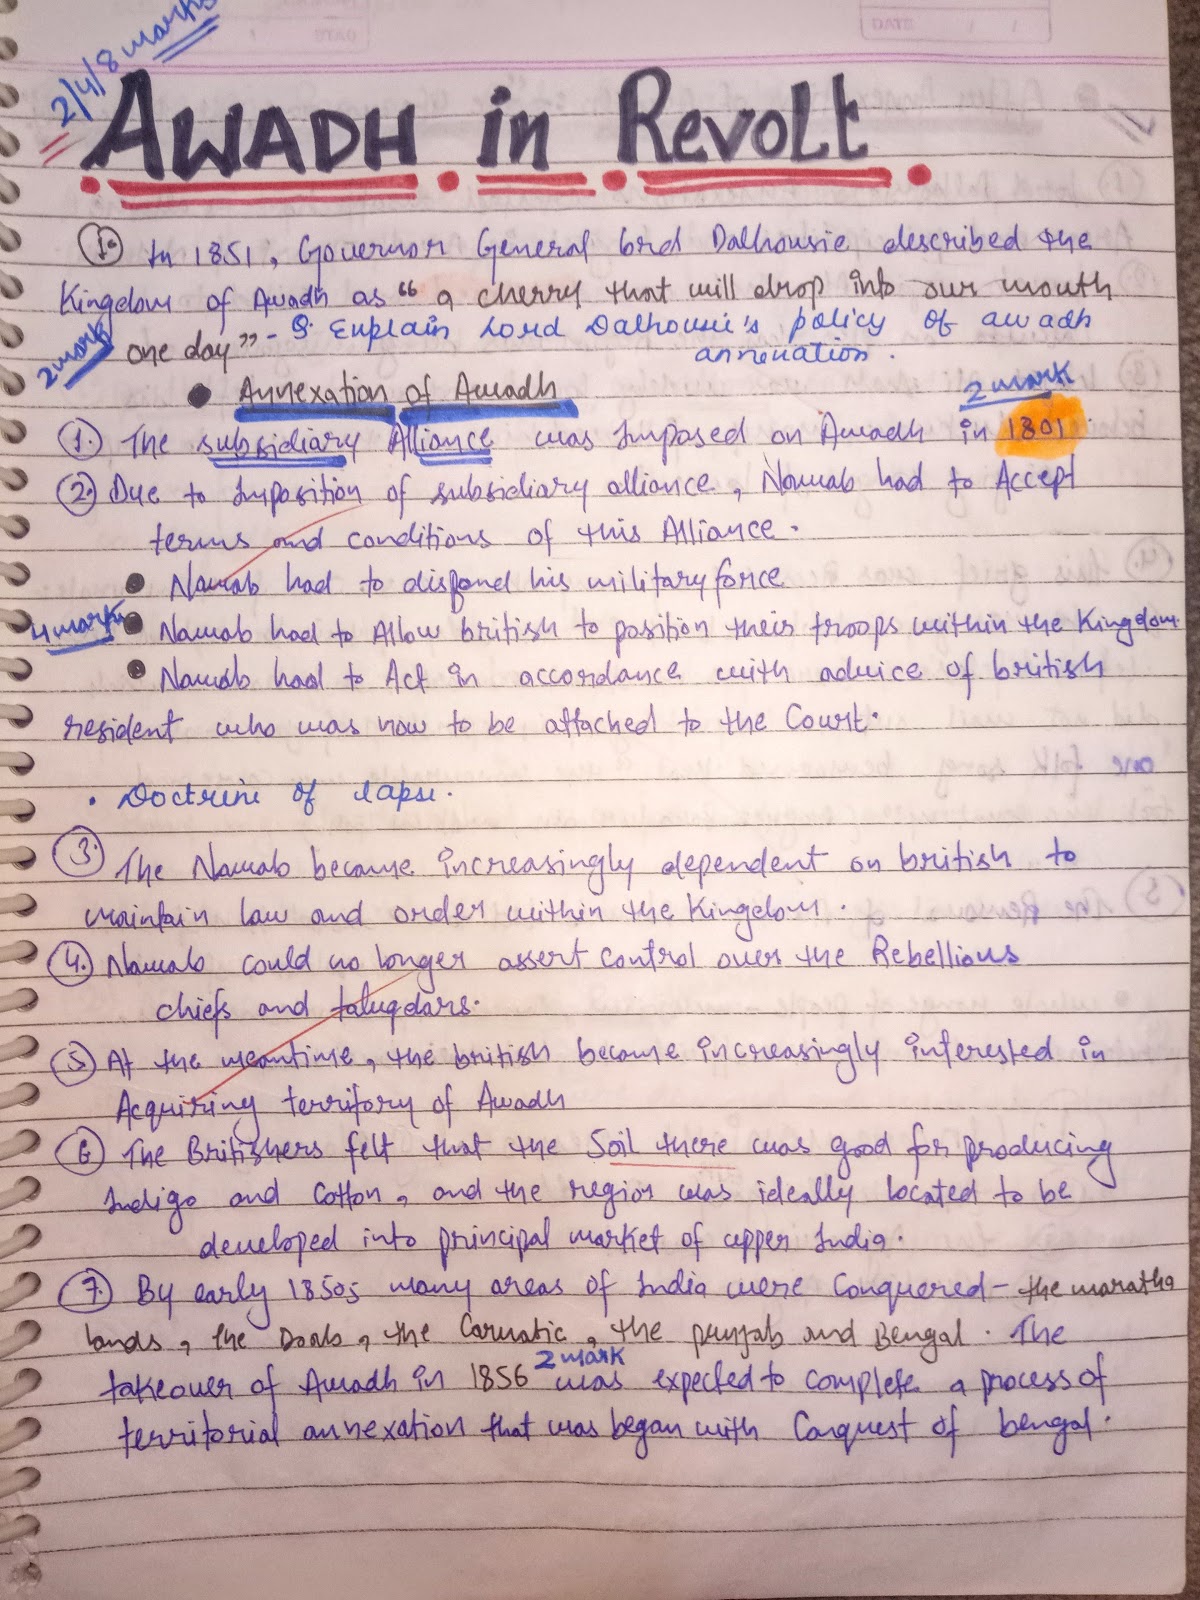 2/4/8 marks
DATE
AWADH in Revolt
1. In 1851, Governor General lord Dalhousie described the
Kingdom of Awadh as " a cherry that will drop into our mouth
one day" - Q. Explain Lord Dalhousie's policy of awadh
annexation.
2 mark
• Annexation of Awadh
2 mark
1. The subsidiary Alliance was Imposed on Awadh in 1801.
2. Due to Imposition of subsidiary alliance, Nawab had to Accept
terms and conditions of this Alliance.
• Nawab had to dispand his military force
4 mark • Nawab had to Allow british to position their troops within the Kingdom.
• Nawab had to Act in accordance with advice of british
resident who was now to be attached to the Court.
• Doctrine of lapse.
3. The Nawab became increasingly dependent on british to
maintain law and order within the Kingdom.
4. Nawab could no longer assert control over the Rebellious
chiefs and taluqdars.
5. At the meantime, the british became increasingly interested in
Acquiring territory of Awadh
6 The Britishers felt that the Soil there was good for producing
Indigo and Cotton, and the region was ideally located to be
developed into principal market of upper India.
7. By early 1850s many areas of India were Conquered - the maratha
lands, the Doab, the Carnatic, the punjab and Bengal. The
2 mark
takeover of Awadh in 1856 was expected to complete a process of
territorial annexation that was began with Conquest of bengal.